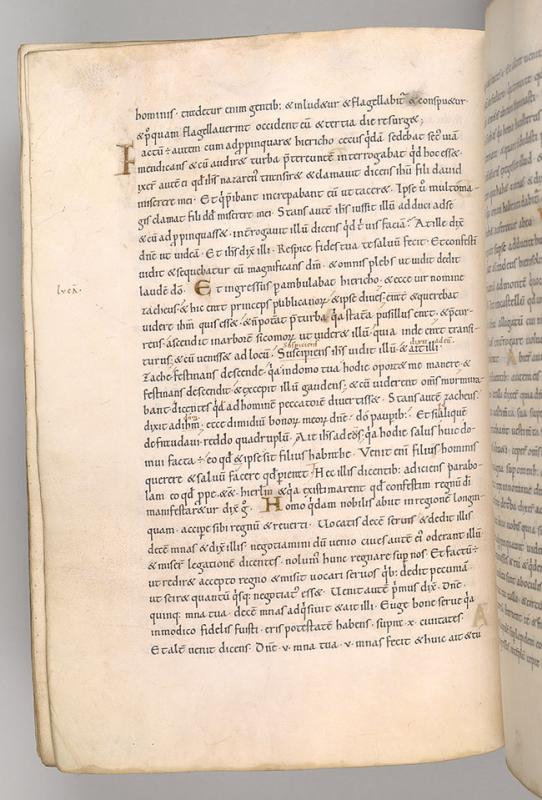 hominis. tradetur enim gentib; & inludetur & flagellabit̄ & conspuetur
& p̄quam flagellauerint occident eū & tertia die resurget;
Factū ÷ autem cum adpropinquaret hiericho cecus q̇dā sedebat sec̄ uiā
mendicans & cū audiret turbā p̄tereuntē interrogabat qd hoc esset.
ixer̄ autē ei qd ihs nazaren' transiret & clamauit dicens ihū fili dauid
miserere mei. Et q p̄ibant increpabant eū ut taceret. Ipse ū multo ma
gis clamat fili dd miserere mei. Stans autē ihs iussit illū adduci ad se
& cū adp̄pinquasset. interrogauit illū dicens qd t' uis faciā. At ille dix̄
dnē ut uideā. Et ihs dix̄ illi. Respice fides tua te saluū fecit. Et confesti
uidit & sequebatur eū magnificans dm̄. & omnis plebs ut uidit dedit
laudē dō. Et ingressus p̄ambulabat hiericho. & ecce uir nomine
lvcā.
zacheus. & hic erat princeps publicanoꝝ & ipse diues. erat & querebat
uidere ihm̄ quis esset. & n̄ poterat p̄ turba q̇a statura pusillus erat. & p̄cur
rens ascendit in arborē sicomorū ut uideret illū. quia inde erat transi
turus; & cū uenisset ad locū. Suscipiens ihs uidit illū & ait illi.
suspiciens
dixit ad eū.
Zache festinans descende. q̇a in domo tua hodie oportet me manere. &
festinans descendit & excepit illū gaudens; & cū uiderent om̄s murmura
bant dicentes qd ad hominē peccatorē diuertisset. Stans autē zacheus
dixit ad ihm̄. ecce dimidiū bonoꝝ meoꝝ dn̄e. do paupib; Et si aliquē
defraudaui. reddo quadruplū. Ait ihs ad eos. q̇a hodie salus huic do
mui facta ÷. eo qd & ipse sit filius habrahe. Venit enī filius hominis
querere & saluū facere qd perierat. Hec illis dicentib; adiciens parabo
lam eo qd p̄pe ēēt hierlm̄ & q̇a existimarent qd confestim regnū dī
manifestaret̄ur dix̄ g̊. Homo q̇dam nobilis abiit in regionē longin
quam. accipe sibi regnū & reuerti. Vocatis decē seruis & dedit illis
decē mnas & dix̄ illis. negotiamini dū uenio ciues autē ei' oderant illū
& miser̄ legationē dicentes. nolum' hunc regnare sup nos. Et factū ÷
ut rediret accepto regno & misit uocari seruos qb; dedit pecuniā
ut sciret quantū qsq; negotiat' esset. Uenit autē p̄mus dix̄. Dnē.
quinq; mna tua. decē mnas adq̇siuit & ait illi. Euge bone serue q̇a
in modico fidelis fuisti. eris potestatē habens. supra .x. ciuitates.
Et alt' uenit dicens. Dnē .v. mna tua .v. mnas fecit & huic ait & tu